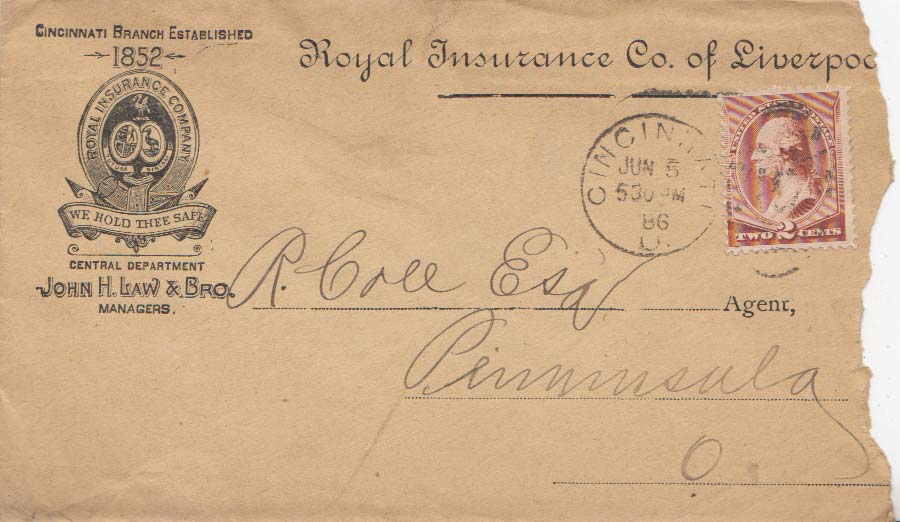 CINCINNATI BRANCH ESTABLISHED
1852
ROYAL INSURANCE COMPANY
WE HOLD THEE SAFE
CENTRAL DEPARTMENT
JOHN H. LAW & BRO.
MANAGERS.
Royal Insurance Co. of Liverpoo
CINCINNATI
JUN 5
530 PM
86
O.
UNITED STATES POSTAGE
TWO 2 CENTS
R. Cole Esq
Agent,
Penninsula
O.